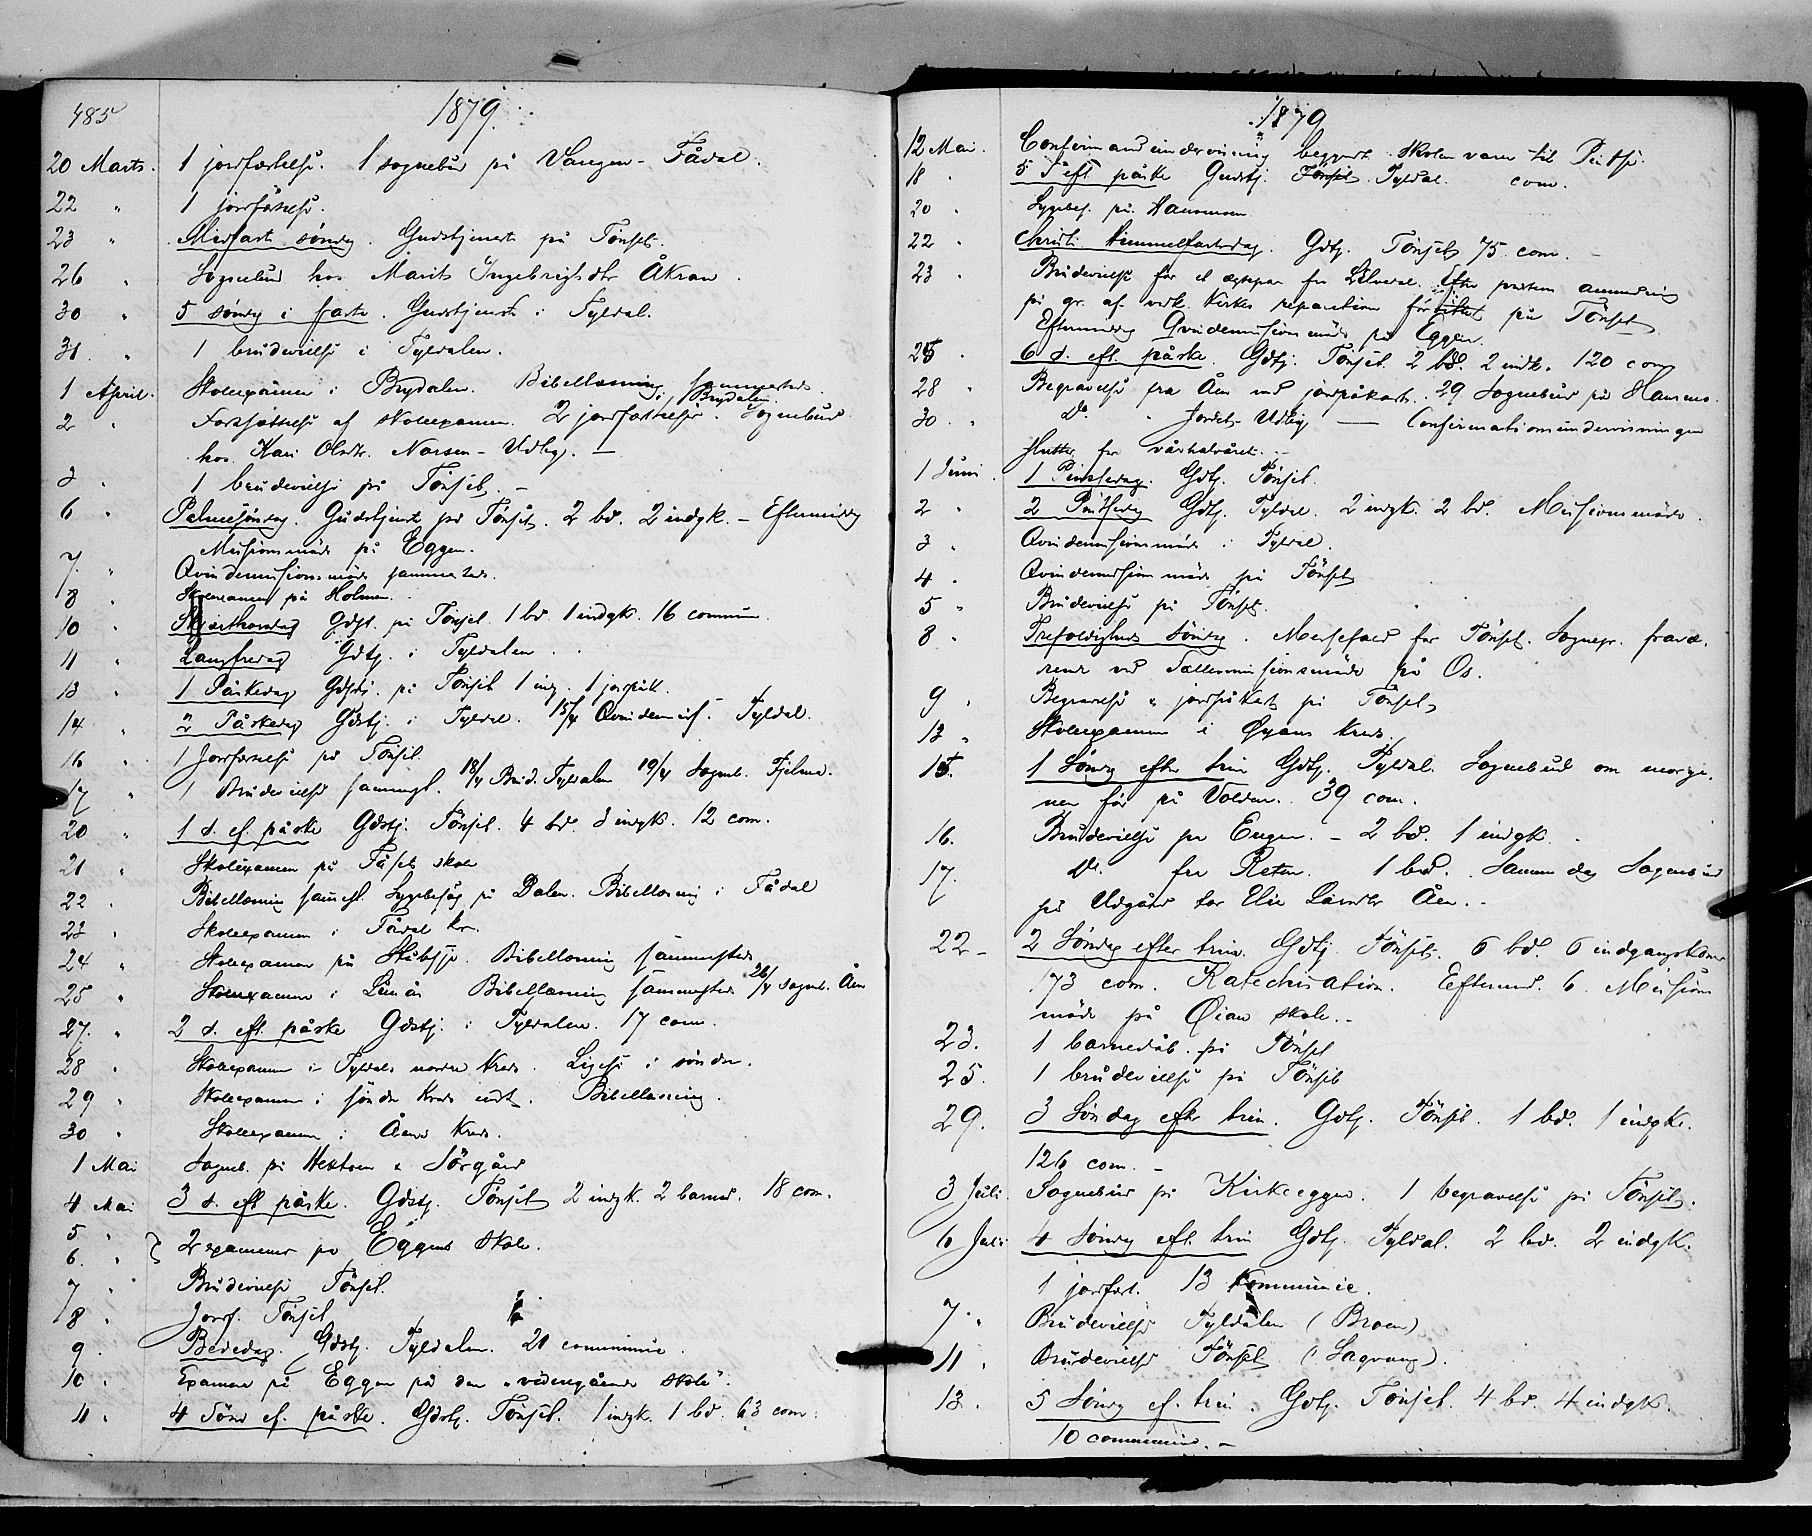 485
1879.
20 Marts. 1 jordfæstelse. 1 sognebud på Vangen - Fådal.
22 " 1 jordfæstelse.
23 " Midfaste søndag. Gudstjeneste på Tönset.
26 " Sognebud hos Marit Ingebrigtsdtr Åkran.
30 " 5 søndag i faste. Gudstjeneste i Tyldal.
31. " 1 brudevielse i Tyldalen.
1 April. Skoleexamen i Brydalen. Bibellæsning sammesteds.
2 " Forsættelse af skoleexamen i Brydalen. 2 jordfæstelser. Sognebud
hos Kari Olsdtr. Narsen - Udleg. —
3 " 1 brudevielse på Tönset. —
6 " Palmesøndag. Gudstjeneste på Tönset. 2 bd. 2 indgk. — Eftermiddag
Missionsmöde på Eggen.
7. " Qvindemissionsmöde sammesteds.
8 " Skoleexamen på Holmen.
10 " Skjærthorsdag Gdst. på Tönset. 1 bd. 1 indgk. 16 commun.
11 " Langfredag Gdtj. i Tyldalen.
13 " 1 Påskedag Gdstj. på Tönset 1 ind. 1 jordpåk.
14 " 2 Påskedag Gdstj. i Tyldal. 15/4 Qvindemis. Tyldal.
16 " 1 Jordfæstelse på Tönset.
17 " 1 Brudevielse sammest. 18/4 Brud. Tyldalen 19/4 Sogneb. Fjelmo.
20 " 1 s. ef. påske Gdstj. Tönset. 4 bd. 3 indgk. 12 com.
21 " Skoleexamen på Fåset skole
22 " Bibellæsning sammest. Sygebesög på Dalen. Bibellæsning i Fådal
23 " Skoleexamen i Fådal kr.
24 " Skoleexamen på Stubsjø. Bibellæsning sammesteds
25 " Skoleexamen i Lunån Bibellæsning sammesteds 26/4 Sogneb. Åen
27. " 2 s. eft. påske Gdstj. i Tyldalen. 17 com.
28 " Skoleexamen i Tyldals nordre kreds. Ligeså i søndre.
29 " Skoleexamen i söndre kreds Bibellæsning.
30 " Skoleexamen i Åens kreds.
1 Mai Sogneb. på Hektoen & Sörgård
4 Mai 3 s. eft påske. Gdstj. Tönset 2 indgk. 2 barned. 18 com.
5 "
6. " 2 examener på Eggens skole.
7 " Brudevielse Tönset.
8 " Jordf. Tönset
9 . Bededag. Gdstj. Tyldalen. 21 communic.
10 . Examen på Eggen på den "videregående skole".
11 . 4 Sönd ef. påske. Gdstj. Tönset. 1 indgk. 1 bd. 63 com.
1879
12 Mai. Confirmandundervisning begyndt. Skolen varer til Pintse.
18 . 5 S eft påske Gudstj. Tönset Tyldal. com.
20 . Sygebes. på Hansmoen
22 . Christi himmelfartsdag. Gdtj. Tönset 75 com. —
23 . Brudevielse for et ægtepar fra Lilleelvdal. Efter prostens anmodning
på gr. af vedk. kirkes reparation på Tönset
Eftermiddag Qvindemissionsmöde på Eggen.
25 . 6 s. eft. påske. Gdtj. Tönset. 2 bd. 2 indk. 120 com
28 " Begravelse fra Åen med jordpåkast. 29 Sognebud på Hansmo.
30 . " Do. " Jordet - Udleg — Confirmationsundervisningen
slutter for vårhalvåret. —
1 Juni. 1 Pintsedag. Gdtj. Tönset.
2 " 2 Pintsedag Gdtj. Tyldal. 2 indgk. 2 bd. Missionsmöde.
3 . Qvindemissionsmöde i Tyldal.
4 . Qvindemissionsmöde på Tönset
5 " Brudevielse på Tönset.
8 . Trefoldigheds Söndag. Messefald for Tönset. Sognepr. fravæ-
rende ved Fællesmissionsmöde på Os.
9 . Begravelse & jordpåkast på Tönset
13 " Skoleexamen i Øyans kreds.
15. 1 Söndag efter trin Gdtj. Tyldal. Sognebud om morge-
nen för på Volden. 39 com.
16. Brudevielse på Eugen. — 2 bd. 1 indgk.
17. Do. fra Reten. 1 bd. Samme dag Sognebud
på Udgård for Elie Larsdtr Åen. -
22 - 2 Söndag efter trin. Gdtj Tönset. 6 bd. 6 indgangskoner
173 com. Katechisation. Efterm. 6. Missions
möde på Øian skole. -
23. 1 barnedåb på Tönset
25. 1 brudevielse på Tönset
29. 3 Söndag efter trin. Gdtj. Tönset. 1 bd. 1 indgk.
126 com. —
3 Juli. Sognebud på Kirkeeggen. 1 begravelse på Tönset.
6 Juli 4 Söndag eft. trin Gdtj. Tyldal. 2 bd. 2 indgk.
1 jordfæst. 13 Kommunic.
7. " Brudevielse Tyldalen (Broen)
11 . Brudevielse Tönset (Lagvang).
13 . 5 Söndag ef. trin. Gdtj. Tönset. 4 bd. 4 indgk.
10 communic. —